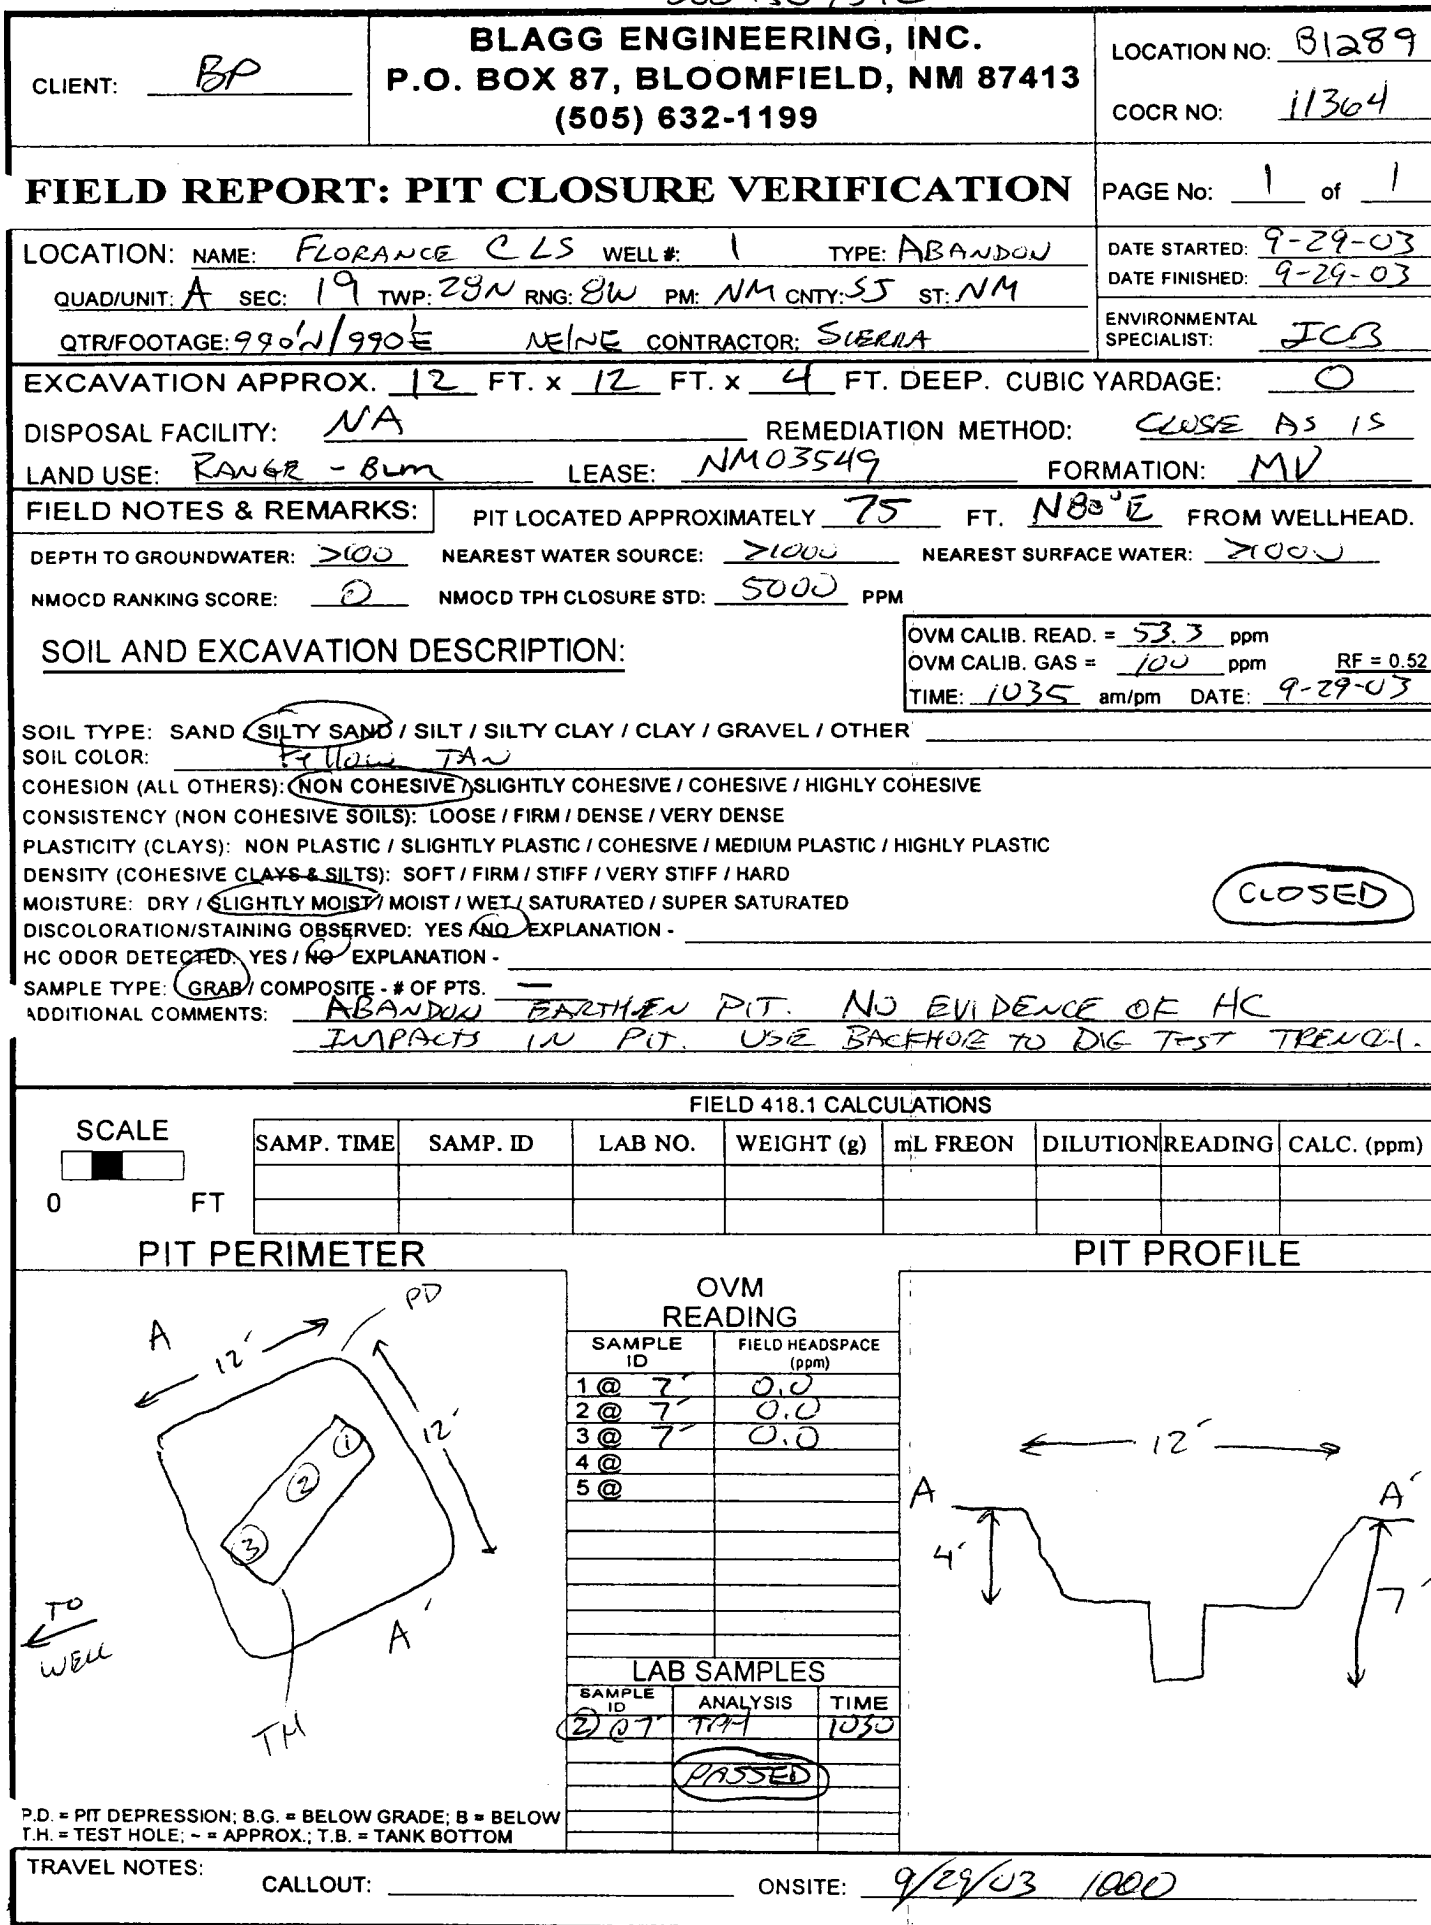 BLAGG ENGINEERING, INC.
P.O. BOX 87, BLOOMFIELD, NM 87413
(505) 632-1199
CLIENT: BP
LOCATION NO: B1289
COCR NO: 11364
FIELD REPORT: PIT CLOSURE VERIFICATION
PAGE No: 1 of 1
LOCATION: NAME: FLORANCE C LS WELL #: 1 TYPE: ABANDON
QUAD/UNIT: A SEC: 19 TWP: 28N RNG: 8W PM: NM CNTY: SJ ST: NM
QTR/FOOTAGE: 990'N/990'E NE/NE CONTRACTOR: SIERRA
DATE STARTED: 9-29-03
DATE FINISHED: 9-29-03
ENVIRONMENTAL
SPECIALIST: JCB
EXCAVATION APPROX. 12 FT. x 12 FT. x 4 FT. DEEP. CUBIC YARDAGE: 0
DISPOSAL FACILITY: NA REMEDIATION METHOD: CLOSE AS IS
LAND USE: RANGE - BLM LEASE: NM03549 FORMATION: MV
FIELD NOTES & REMARKS: PIT LOCATED APPROXIMATELY 75 FT. N80°E FROM WELLHEAD.
DEPTH TO GROUNDWATER: >100 NEAREST WATER SOURCE: >1000 NEAREST SURFACE WATER: >1000
NMOCD RANKING SCORE: 0 NMOCD TPH CLOSURE STD: 5000 PPM
SOIL AND EXCAVATION DESCRIPTION:
OVM CALIB. READ. = 53.3 ppm
OVM CALIB. GAS = 100 ppm RF = 0.52
TIME: 1035 am/pm DATE: 9-29-03
SOIL TYPE: SAND / SILTY SAND / SILT / SILTY CLAY / CLAY / GRAVEL / OTHER
SOIL COLOR: Yellow TAN
COHESION (ALL OTHERS): NON COHESIVE / SLIGHTLY COHESIVE / COHESIVE / HIGHLY COHESIVE
CONSISTENCY (NON COHESIVE SOILS): LOOSE / FIRM / DENSE / VERY DENSE
PLASTICITY (CLAYS): NON PLASTIC / SLIGHTLY PLASTIC / COHESIVE / MEDIUM PLASTIC / HIGHLY PLASTIC
DENSITY (COHESIVE CLAYS & SILTS): SOFT / FIRM / STIFF / VERY STIFF / HARD
MOISTURE: DRY / SLIGHTLY MOIST / MOIST / WET / SATURATED / SUPER SATURATED
CLOSED
DISCOLORATION/STAINING OBSERVED: YES / NO EXPLANATION -
HC ODOR DETECTED: YES / NO EXPLANATION -
SAMPLE TYPE: GRAB / COMPOSITE - # OF PTS. —
ADDITIONAL COMMENTS: ABANDON EARTHEN PIT. NO EVIDENCE OF HC
IMPACTS IN PIT. USE BACKHOE TO DIG TEST TRENCH.
FIELD 418.1 CALCULATIONS
SCALE
0 FT
SAMP. TIME SAMP. ID LAB NO. WEIGHT (g) mL FREON DILUTION READING CALC. (ppm)
PIT PERIMETER
PD
A
12'
12'
1
2
3
A'
TO
WELL
TH
P.D. = PIT DEPRESSION; B.G. = BELOW GRADE; B = BELOW
T.H. = TEST HOLE; ~ = APPROX.; T.B. = TANK BOTTOM
OVM
READING
SAMPLE ID FIELD HEADSPACE (ppm)
1 @ 7' 0.0
2 @ 7' 0.0
3 @ 7' 0.0
4 @
5 @
LAB SAMPLES
SAMPLE ID ANALYSIS TIME
2 @ 7' TPH 1030
PASSED
PIT PROFILE
12'
A
A'
4'
7'
TRAVEL NOTES:
CALLOUT: ONSITE: 9/29/03 1000